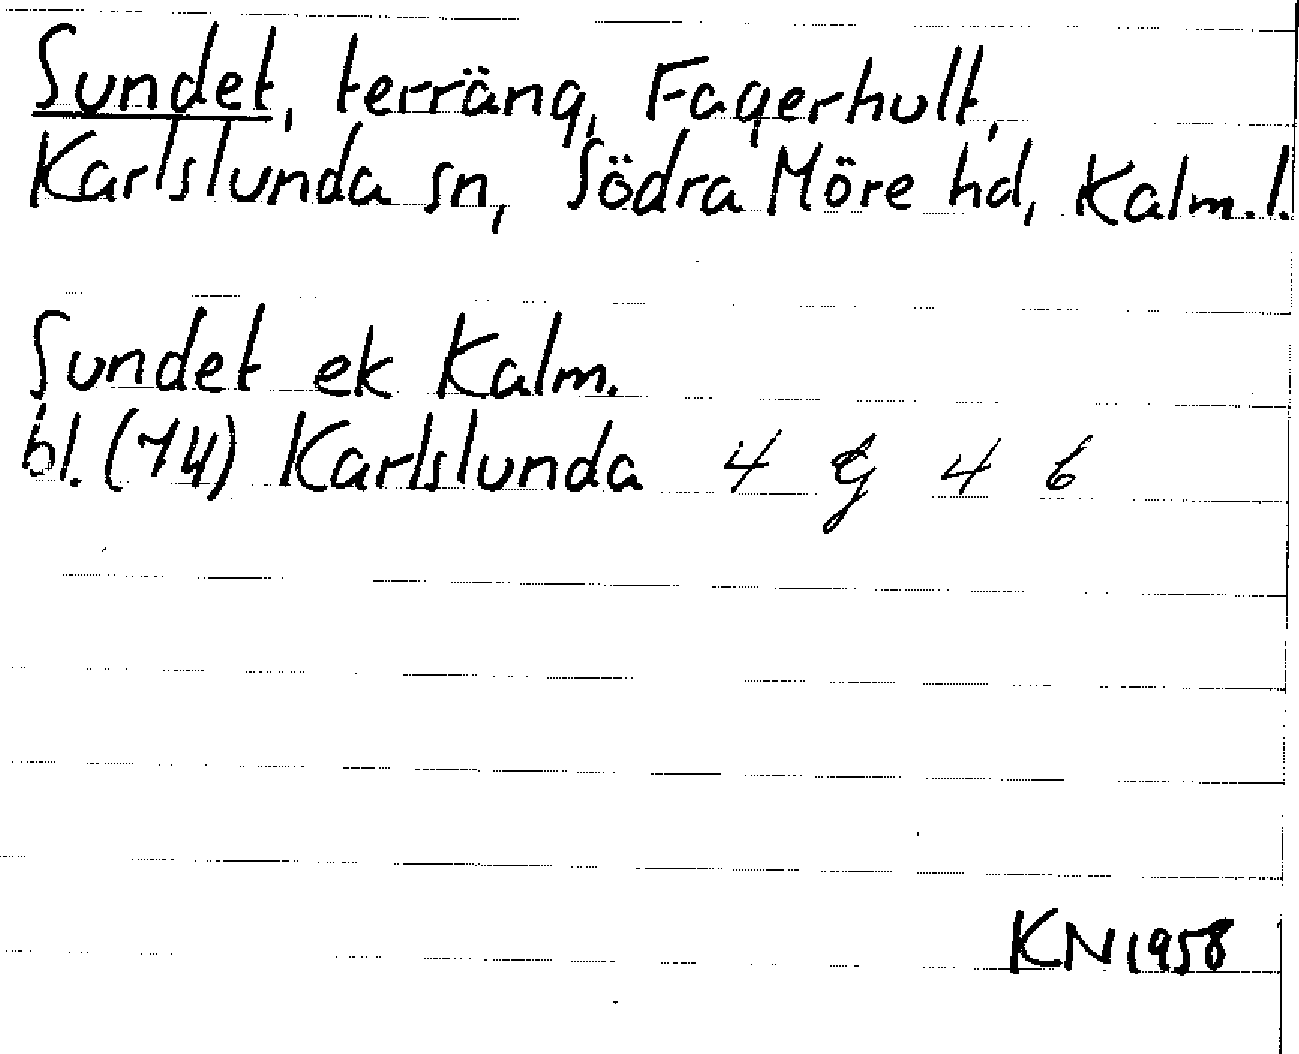 Sundet, terräng, Fagerhult,
Karlslunda sn, Södra Möre hd, Kalm.l.
Sundet ek Kalm.
bl. (74) Karlslunda 4 G 4 6
KN 1958